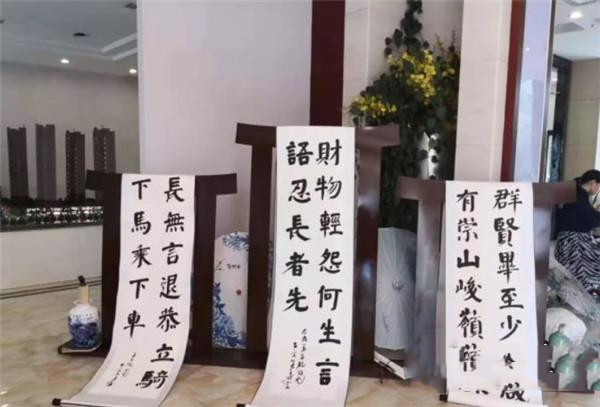 群賢畢至少
有崇山峻嶺
財物輕怨何生言
語忍長者先
長無言退恭立騎
下馬乘下車